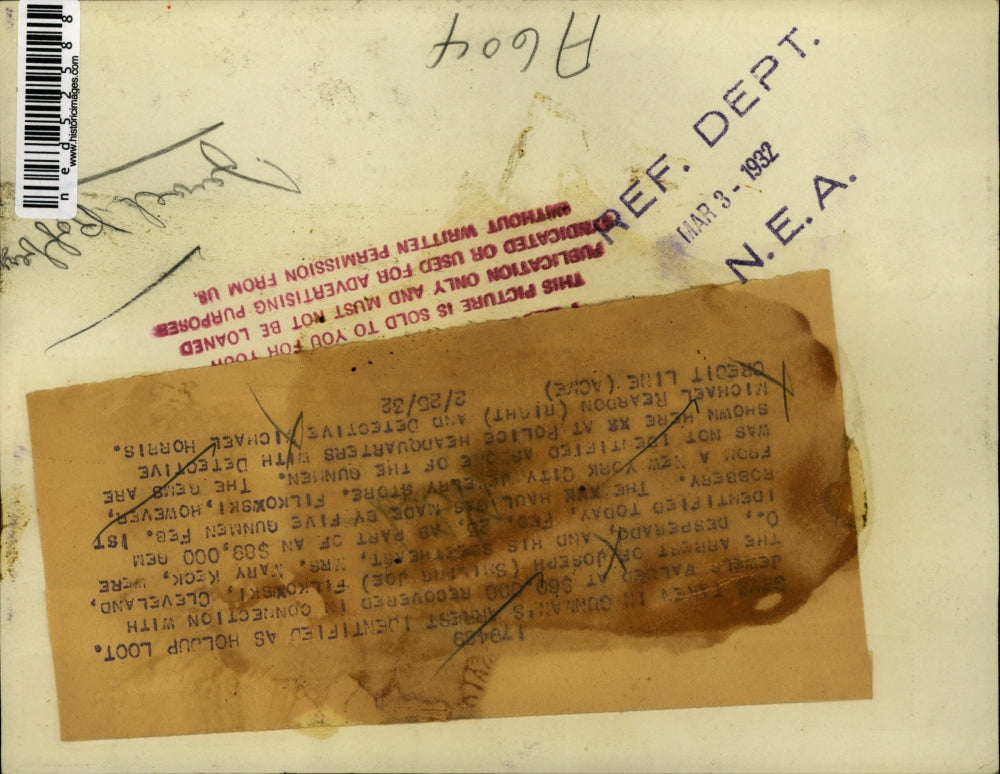 ned52588
www.historicimages.com
A604
REF. DEPT.
MAR 3 - 1932
N. E. A.
THIS PICTURE IS SOLD TO YOU FOR YOUR
PUBLICATION ONLY AND MUST NOT BE LOANED
SYNDICATED OR USED FOR ADVERTISING PURPOSES
WITHOUT WRITTEN PERMISSION FROM US.
GEMS TAKEN IN GUNMAN'S ARREST IDENTIFIED AS HOLDUP LOOT.
JEWELS VALUED AT $69,000 RECOVERED IN CONNECTION WITH
THE ARREST OF JOSEPH (SMILING JOE) FILKOWSKI, CLEVELAND,
O., DESPERADO, AND HIS SWEETHEART, MRS. MARY KECK, WERE
IDENTIFIED TODAY, FEB. 25, AS PART OF AN $89,000 GEM
ROBBERY. THE XXX HAUL WAS MADE BY FIVE GUNMEN FEB. 1ST
FROM A NEW YORK CITY JEWELRY STORE. FILKOWSKI, HOWEVER,
WAS NOT IDENTIFIED AS ONE OF THE GUNMEN. THE GEMS ARE
SHOWN HERE XX AT POLICE HEADQUARTERS WITH DETECTIVE
MICHAEL REARDON (RIGHT) AND DETECTIVE MICHAEL HORRIS.
CREDIT LINE (ACME) 2/25/32